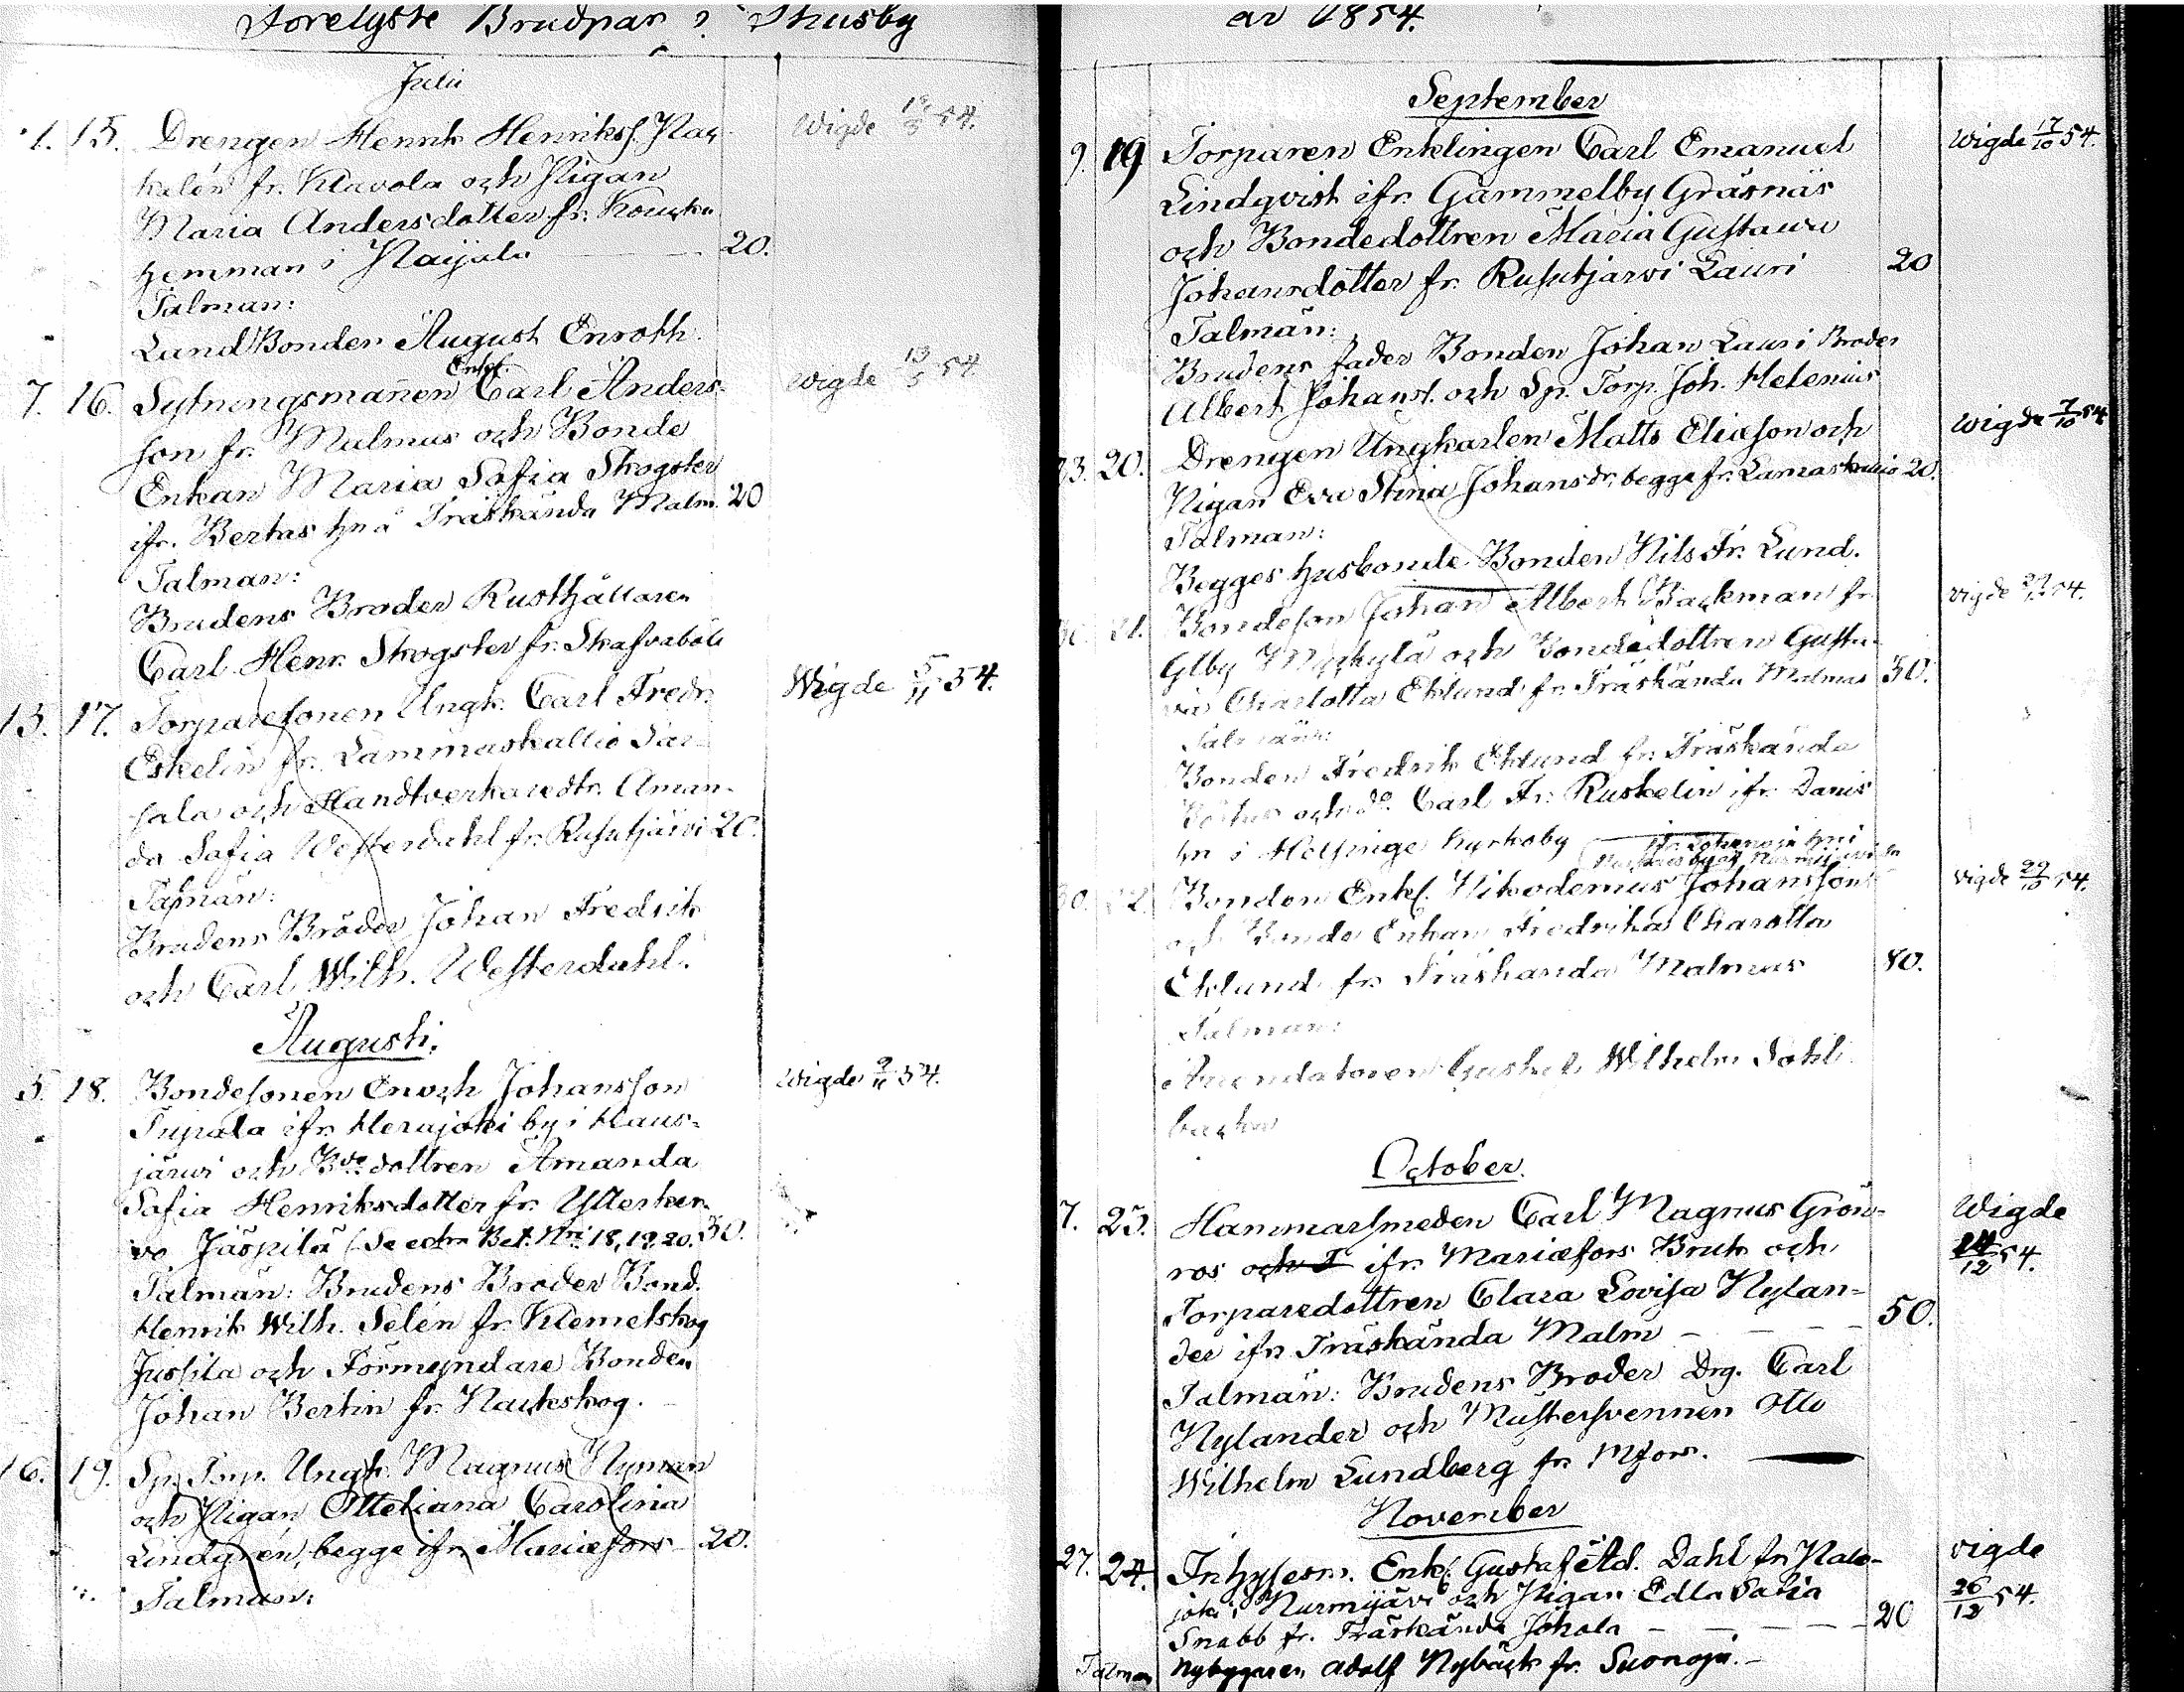 Forelyste Brudpar i Thusby
Julii
1. 15. Drengen Henrik Henrikss.
fr. Klavola och Pigan
Maria Andersdotter fr.
hemman i Paijala 20.
Talman:
LandBonden August Enroth.
Enkl.
7. 16. Sytningsmanen Carl Anders-
son fr. Malmus och Bonde
Enkan Maria Sofia Skogster
ifr. Bertas hn å Träskända Malm. 20
Talman:
Brudens Broder Rusthållaren
Carl Henr. Skogster fr. Skafvaböle
13. 17. Torparesonen Ungk. Carl Fredr.
Eskelin fr. Lammaskallio
och Handtverkaredtr. Aman-
da Sofia Westerdahl fr. Rusutjärvi 20.
Talmän:
Brudens Bröder Johan Fredrik
och Carl Wilh. Westerdahl.
Augusti.
5. 18. Bondesonen Enoch Johansson
Tupala ifr. Herajoki by i Haus-
järvi och Bde dottren Amanda
Sofia Henriksdotter fr. Ytterker-
vo Jäspilä (Se Bet. Nri 18, 19, 20. 50.
Talmän: Brudens Broder Bond.
Henrik Wilh. Selén fr. Klemetskog
Juspila och Förmyndare Bonden
Johan Bertin fr. Nackskog.
16. 19. Sp. Torp. Ungk. Magnus Nyman
och Pigan Otteliana Carolina
Lindgrén, begge ifr. Mariæfors 20.
Talman:
Wigde 54.
Wigde 54.
Wigde 5/11 54.
Wigde 54.
år 1854.
September
9. 19 Torparen Enklingen Carl Emanuel
Lindqvist ifr. Gammelby Gräsnäs
och Bondedottren Maria Gustawa
Johansdotter fr. Rusutjärvi Lauri 20
Talmän:
Brudens fader Bonden Johan Lauri Broder
Albert Johanss. och Sp. Torp. Joh. Helenius
23. 20. Drengen Ungkarlen Matts Eliasson och
Pigan Eva Stina Johansdr. begge fr. Lamaskallio 20.
Talman:
Begges husbonde Bonden Nils Fr. Lund.
30. 21. Bondeson Johan Albert Backman fr.
Glby Myckylä och Bondedottren Gusta-
va Charlotta Eklund fr. Träskända Malmus 50.
Talmän:
Bonden Fredrik Eklund fr. Träskända
och do. Carl Fr. Ruskelin ifr. Danis
hn i Helsinge kyrkoby
30. 22. Bonden Enkl. Nikodemus Johansson
och Bonde Enkan Fredrika Charotta
Eklund fr. Träskända Malmus 80.
Talman:
Arendatoren Gustaf Wilhelm Dahl-
backa
October.
7. 23. Hammarsmeden Carl Magnus Grön-
ros och T ifr. Mariæfors Bruk och
Torparedottren Clara Lovisa Nylan-
der ifr. Träskända Malm 50.
Talmän: Brudens Broder Drg. Carl
Nylander och Mästersvennen Otto
Wilhelm Lundberg fr. Mfors.
November
27. 24. Inhysesm. Enkl. Gustaf Ad. Dahl fr. Palo-
joki i Nurmijärvi och Pigan Edla Sofia
Snabb fr. Träskända Johola 20
Talman Nybyggaren Adolf Nybäck fr. Suonoja.
Wigde 17/10 54.
Wigde 7/10 54
Vigde 54.
Vigde 29/10 54.
Wigde
14/12 54.
Vigde
26/12 54.